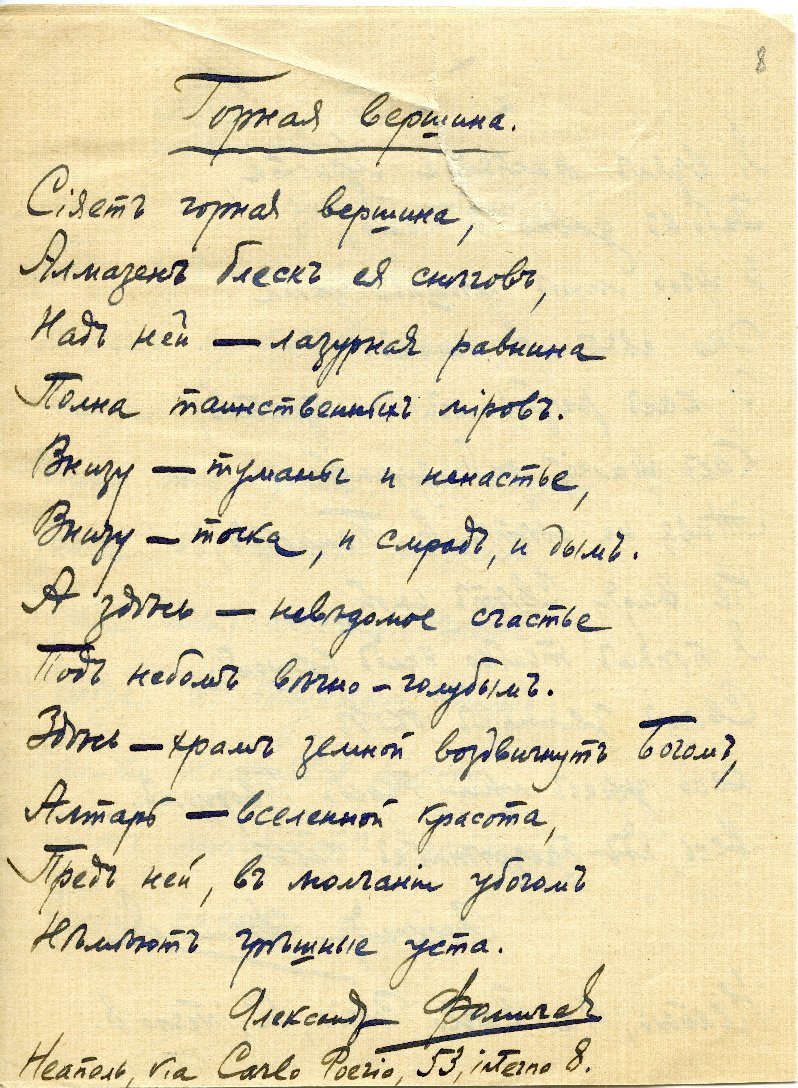 8
Горная вершина.
Сіяетъ горная вершина,
Алмазенъ блескъ ея снѣговъ,
Надъ ней — лазурная равнина
Полна таинственныхъ міровъ.
Внизу — туманы и ненастье,
Внизу — тоска, и смрадъ, и дымъ.
А здѣсь — невѣдомое счастье
Подъ небомъ вѣчно-голубымъ.
Здѣсь — храмъ земной воздвигнутъ Богомъ,
Алтарь — вселенной красота,
Предъ ней, въ молчаніи убогомъ
Нѣмѣютъ грѣшные уста.
Александр
Неаполь, via Carlo Poerio, 53, interno 8.